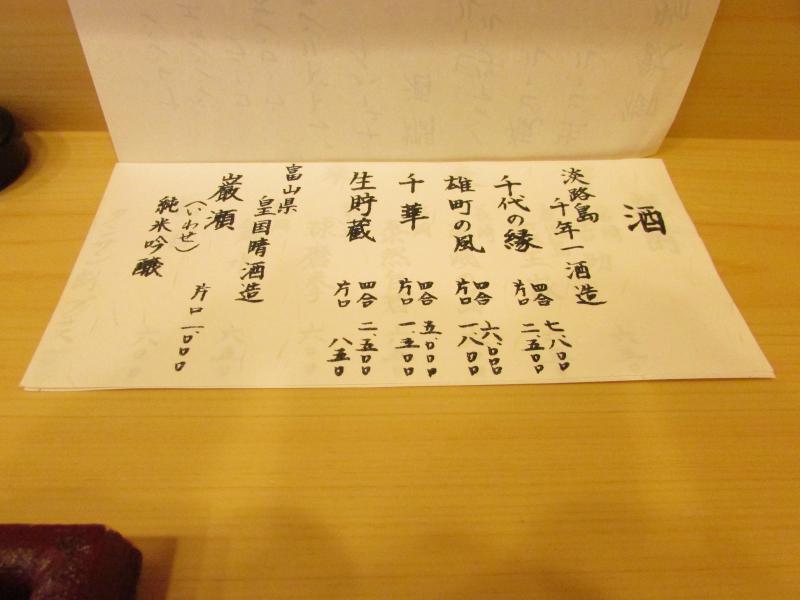 酒
淡路島
千年一酒造
千代の縁
四合 七、八〇〇
片口 二、五〇〇
雄町の風
四合 六、〇〇〇
片口 一、八〇〇
千華
四合 五、〇〇〇
片口 一、五〇〇
生貯蔵
四合 二、五〇〇
片口 八五〇
富山県
皇国晴酒造
巖瀬
（いわせ）
純米吟醸
片口 一、〇〇〇